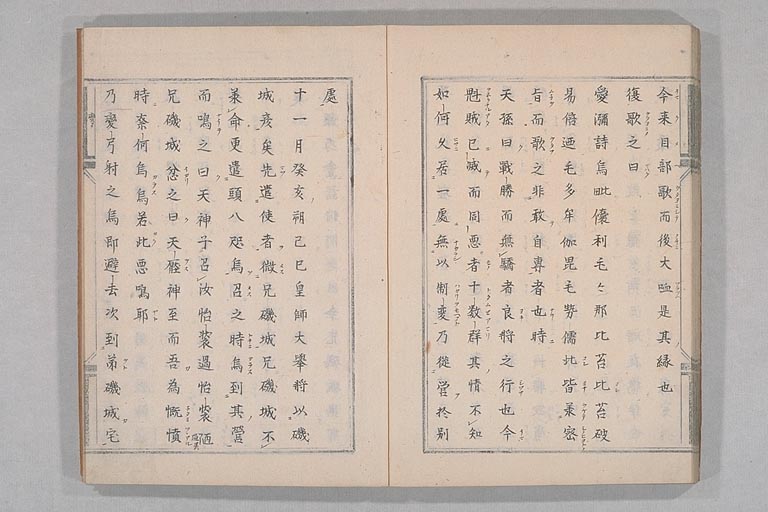 今来目部歌而後大哂是其縁也
復歌之曰
愛瀰詩烏毗儾利毛々那比苔比苔破
易倍廼毛多牟伽毘毛勢儒此皆羕密
旨而歌之非敢自専者也時
天孫曰戦勝而無驕者良将之行也今
魁賊已滅而同悪者十数群其情不知
如何久居一處無以制変乃徙営於別
處
十一月癸亥朔己巳皇師大挙将以磯
城彦矣先遣使者徴兄磯城兄磯城不
羕命更遣頭八咫烏召之時烏到其營
而鳴之曰天神子召汝怡奘過怡奘
兄磯城忿之曰天厭神至而吾為慨憤
時奈何烏鳥若此悪鳴耶
乃彎弓射之烏即避去次到弟磯城宅